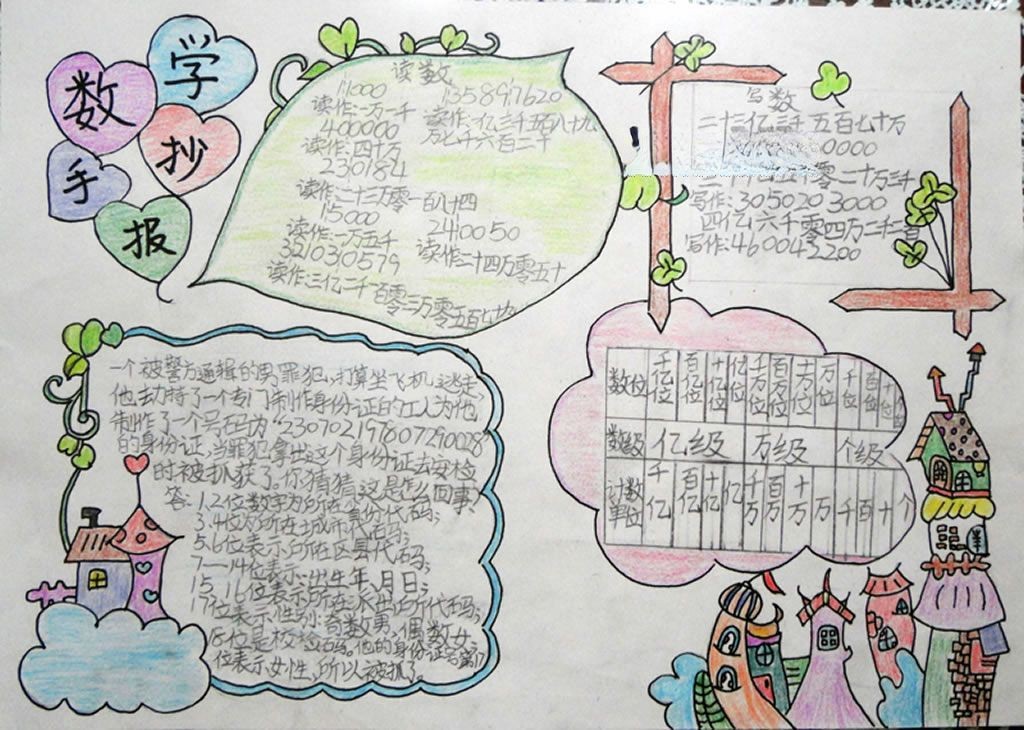 数学
手抄报
读数
11000
读作:一万一千
400000
读作:四十万
230184
读作:二十三万零一百八十四
15000
读作:一万五千
321030579
读作:三亿二千一百零三万零五百七十九
135897620
读作:一亿三千五百八十九
万七千六百二十
240050
读作:二十四万零五十
写数
二十三亿三千五百七十万
0000
零二十万三千
写作:3050203000
四亿六千零四万二千二百
写作:460042200
一个被警方通缉的男罪犯,打算坐飞机逃走,
他劫持了一个专门制作身份证的工人为他
制作了一个号码为“230702197607290028”
的身份证,当罪犯拿出这个身份证去安检
时被抓获了。你猜猜这是怎么回事?
答:1.2位数字为所在省份代码;
3.4位为所在城市代码;
5.6位表示所在区县代码;
7—14位表示:出生年、月、日;
15、16位表示所在派出所代码;
17位表示性别:奇数男,偶数女;
18位是校验码。他的身份证号第17
位表示女性,所以被抓了。
数位 千亿位 百亿位 十亿位 亿位 千万位 百万位 十万位 万位 千位 百位 十位
数级 亿级 万级 个级
计数单位 千亿 百亿 十亿 亿 千万 百万 十万 万 千 百 十 个